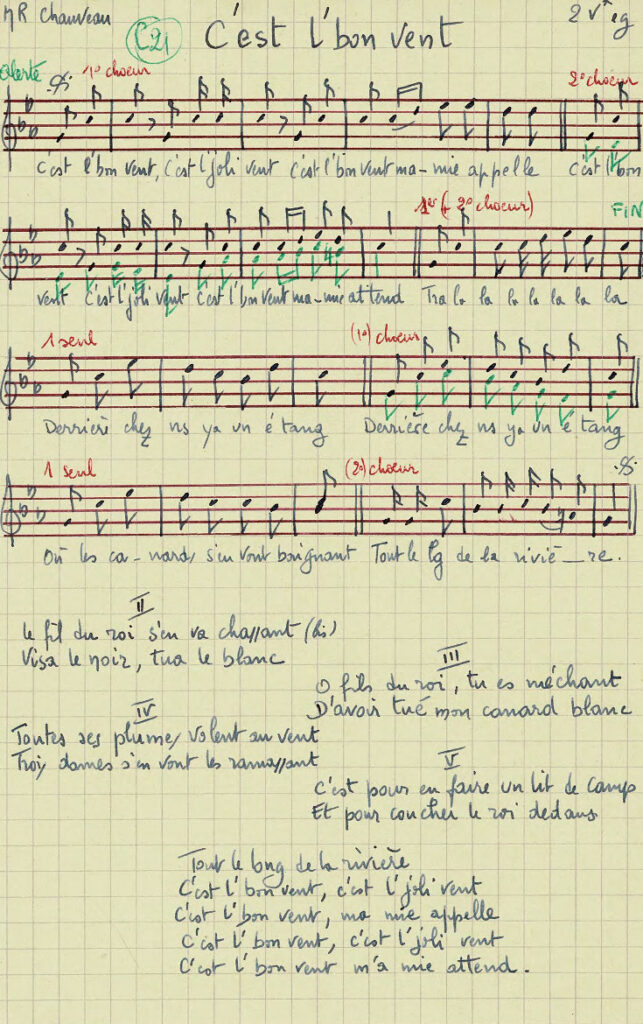 MR Chauveau
C21
C'est l'bon vent
2 vx eg
alerté
1° choeur
2° choeur
C'est l'bon vent, C'est l'joli vent C'est l'bon vent ma-mie appelle C'est l'bon
1er (+ 2° choeur)
FIN
vent C'est l'joli vent C'est l'bon vent ma-mie attend Tra la la la la la la la
1 seul
(1°) choeur
Derrière chez ns ya un é tang Derrière chez ns ya un é tang
1 seul
(2°) choeur
Où les ca-nards s'en vont baignant Tout le lg de la riviè-re.
II
le fil du roi s'en va chassant (bis)
Visa le noir, tua le blanc
III
O fils du roi, tu es méchant
D'avoir tué mon canard blanc
IV
Toutes ses plumes volent au vent
Trois dames s'en vont les ramassant
V
C'est pour en faire un lit de camp
Et pour coucher le roi dedans
Tout le long de la rivière
C'est l'bon vent, c'est l'joli vent
C'est l'bon vent, ma mie appelle
C'est l'bon vent, c'est l'joli vent
C'est l'bon vent m'a mie attend.